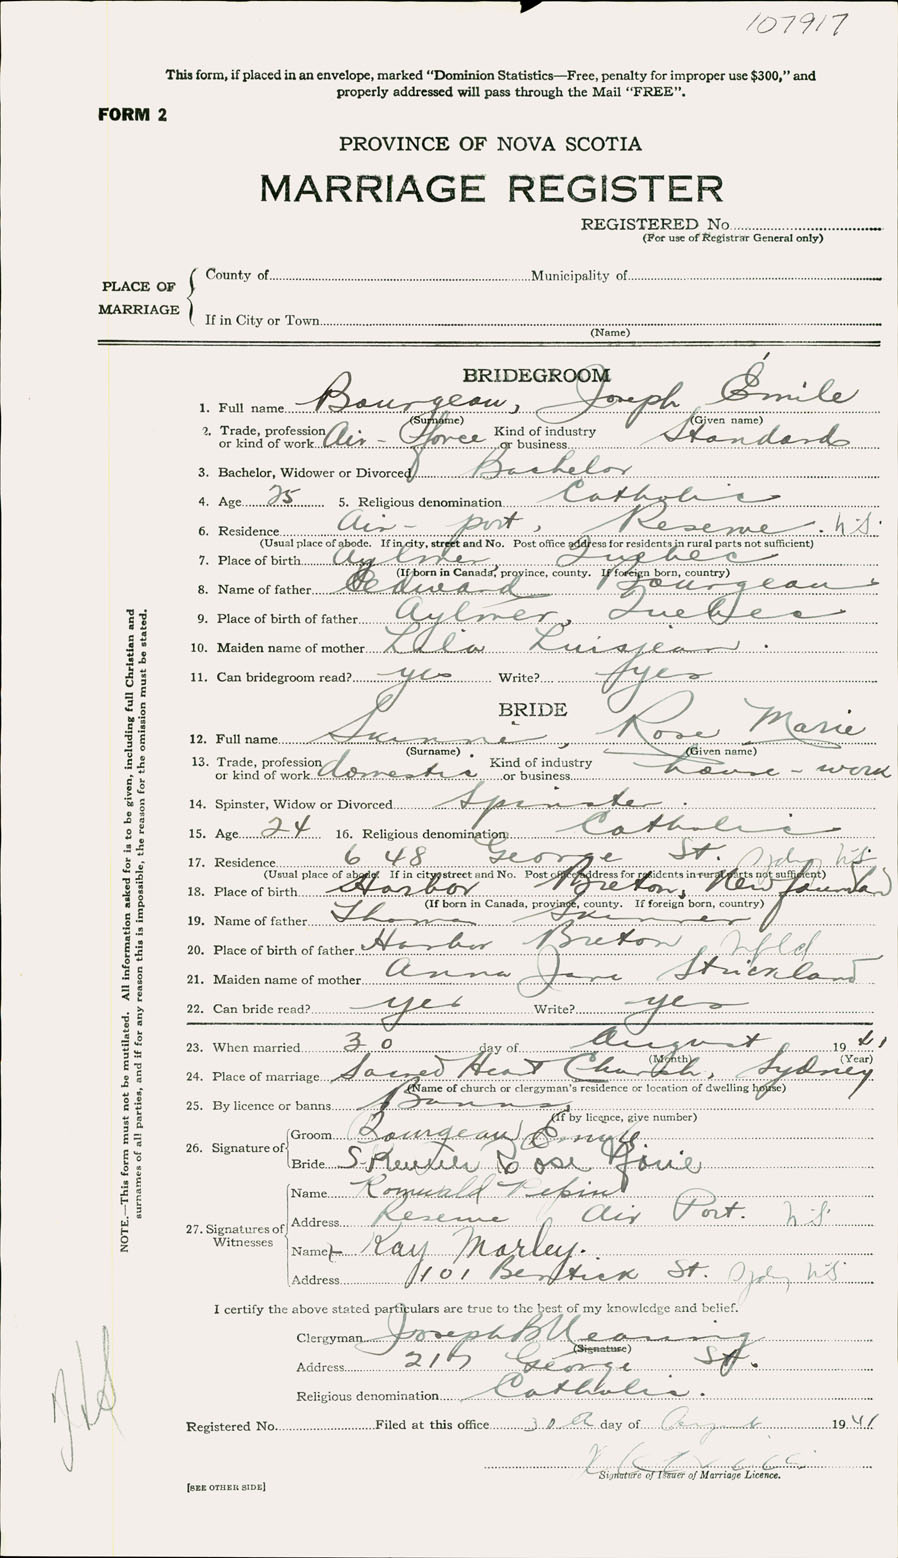 107917
This form, if placed in an envelope, marked "Dominion Statistics—Free, penalty for improper use $300," and
properly addressed will pass through the Mail "FREE".
FORM 2
PROVINCE OF NOVA SCOTIA
MARRIAGE REGISTER
REGISTERED No.
(For use of Registrar General only)
PLACE OF MARRIAGE
County of Municipality of
If in City or Town
(Name)
BRIDEGROOM
1. Full name Bourgeau, Joseph Émile
(Surname) (Given name)
2. Trade, profession or kind of work Air-Force Kind of industry or business Standard
3. Bachelor, Widower or Divorced Bachelor
4. Age 25 5. Religious denomination Catholic
6. Residence Air-port, Reserve. N.S.
(Usual place of abode. If in city, street and No. Post office address for residents in rural parts not sufficient)
7. Place of birth Aylmer, Quebec
(If born in Canada, province, county. If foreign born, country)
8. Name of father Edward Bourgeau
9. Place of birth of father Aylmer, Quebec
10. Maiden name of mother Lila
11. Can bridegroom read? yes Write? yes
BRIDE
12. Full name Rose Marie
(Surname) (Given name)
13. Trade, profession or kind of work domestic Kind of industry or business house-work
14. Spinster, Widow or Divorced Spinster.
15. Age 24 16. Religious denomination Catholic
17. Residence 648 George St. Sydney N.S.
(Usual place of abode. If in city, street and No. Post office address for residents in rural parts not sufficient)
18. Place of birth Harbor Breton, Newfoundland
(If born in Canada, province, county. If foreign born, country)
19. Name of father Thomas Skinner
20. Place of birth of father Harbor Breton Nfld
21. Maiden name of mother Anna Jane Strickland
22. Can bride read? yes Write? yes
23. When married 30 day of August 1941
(Month) (Year)
24. Place of marriage Sacred Heart Church, Sydney
(Name of church or clergyman's residence or location of dwelling house)
25. By licence or banns Banns
(If by licence, give number)
26. Signature of
Groom Bourgeau Emile
Bride Rose Marie
27. Signatures of Witnesses
Name Romuald Pepin
Address Reserve Air Port. N.S.
Name Kay Morley.
Address 101 Bentick St. Sydney N.S.
I certify the above stated particulars are true to the best of my knowledge and belief.
Clergyman Joseph B
(Signature)
Address 217 George St.
Religious denomination Catholic.
Registered No. Filed at this office 30th day of August 1941
Signature of Issuer of Marriage Licence.
[SEE OTHER SIDE]
NOTE.—This form must not be mutilated. All information asked for is to be given, including full Christian and
surnames of all parties, and if for any reason this is impossible, the reason for the omission must be stated.